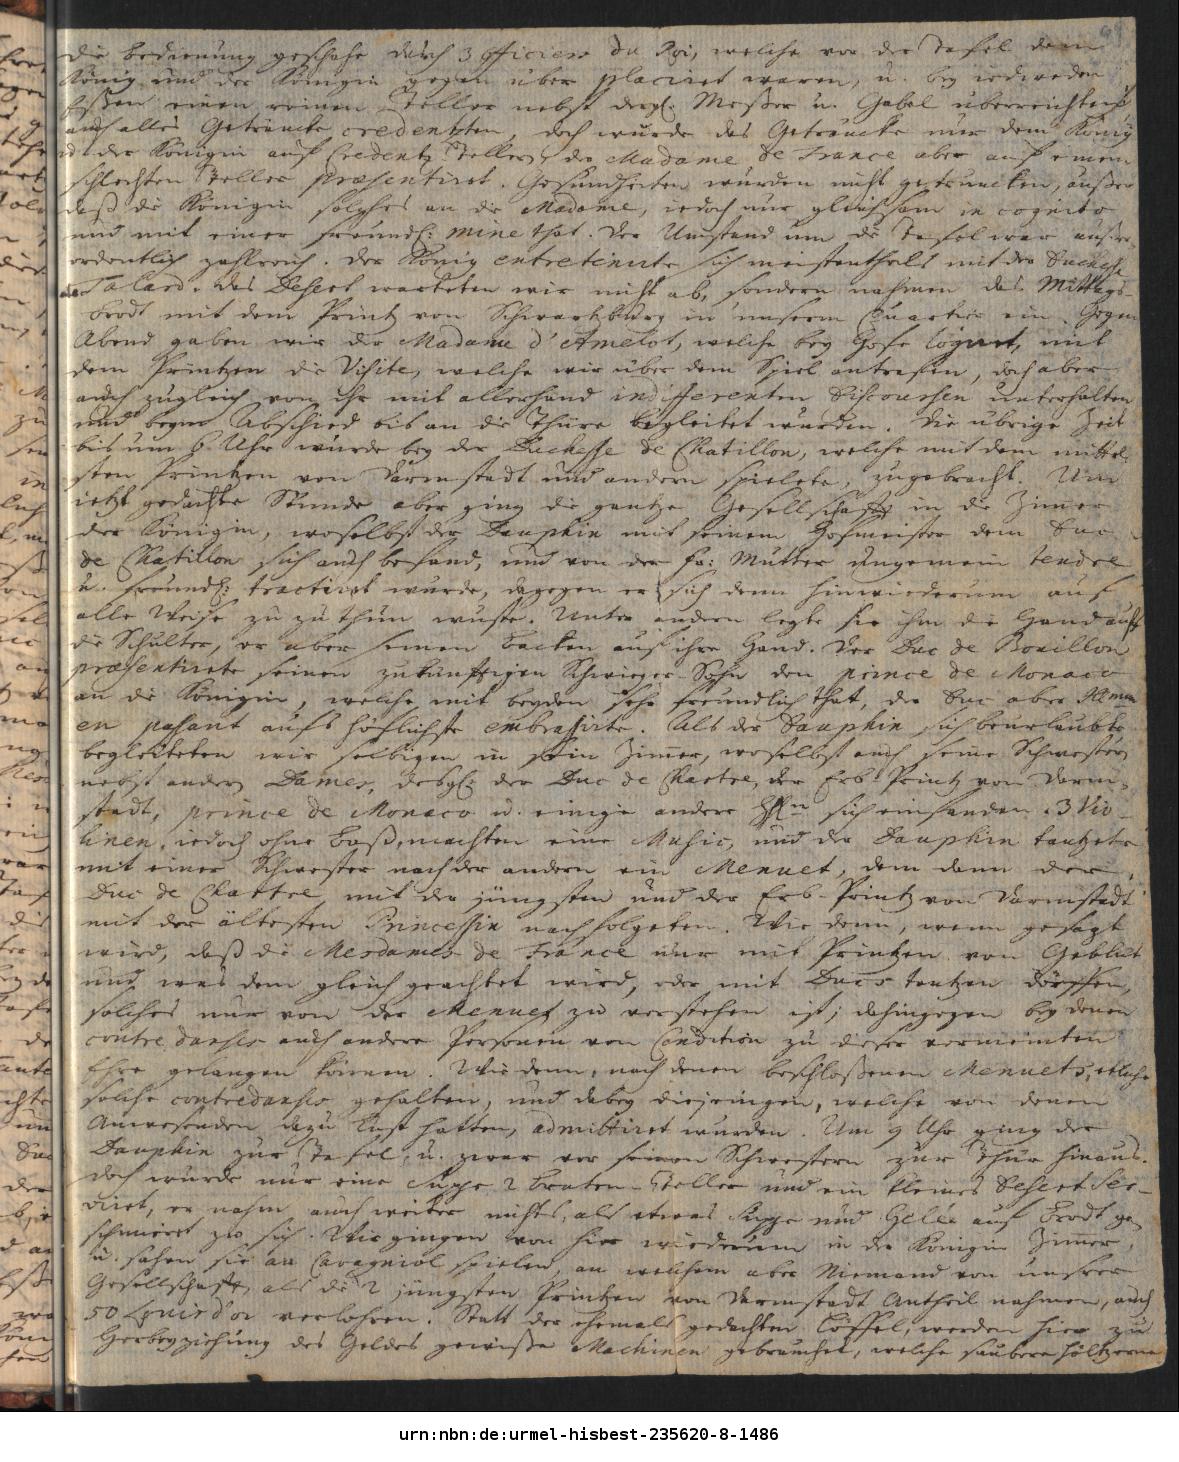 die bedienung geschahe durch 3 Officiers du Roi, welche vor der Tafel dem
König und der Königin gegen über placiret waren, u. bey iedweden
Eßen einen reinen Teller nebst dergl. Meßer u. Gabel überreichten,
auch alles Geträncke credentzten, doch wurde das Geträncke nur dem König
u. der Königin auf Credentz Tellern, der Madame de France aber auf einem
schlechten Teller præsentiret. Gesundheiten wurden nicht getruncken, außer
daß die Königin solches an die Madame, iedoch nur gleichsam in cognito
und mit einer freundl: mine that. Der Umstand um die Tafel war außer-
ordentlich zahlreich. Der König entretenirte sich meistentheils mit der Duchesse
de Talard. Das Desert warteten wir nicht ab, sondern nahmen das Mittags-
brodt mit dem Printz von Schwartzburg in unserm Quartier ein. Gegen
Abend gaben wir der Madame d'Amelot, welche bey Hofe logiret, mit
dem Printzen die Visite, welche wir über dem Spiel antrafen, doch aber
auch zugleich von ihr mit allerhand indifferenten Discoursen unterhalten
und beym Abschied bis an die Thüre begleitet wurden. Die übrige Zeit
bis um 6 Uhr wurde bey der Duchesse de Chatillon, welche mit dem mittel-
sten Printzen von Darmstadt und andern spielete, zugebracht. Um
ietzt gedachte Stunde aber ging die gantze Gesellschafft in die Zimer
der Königin, woselbst der Dauphin mit seinem Hofmeister dem Duc
de Chatillon sich auch befand, und von der Fr: Mutter ungemein tendre
u. freundl: tractiret wurde, dagegen er sich denn hinwiederum auf
alle Weise zu zu thun wuste. Unter andern legte sie ihm die Hand auff
die Schulter, er aber seinen Backen auf ihre Hand. Der Duc de Bouillon
præsentirte seinen zukünfftigen Schwieger-Sohn den prince de Monaco
an die Königin, welche mit beyden sehr freundlich that, der Duc aber
en passant aufs höflichste embrassirte. Als der Dauphin sich beurlaubte,
begleiteten wir selbigen in sein Zimer, woselbst auch seine Schwestern
nebst andern Dames, desgl: der Duc de Chartre, der Erb-Printz von Darm-
stadt, prince de Monaco u. einige andere HEn sich einfanden. 3 Vio-
linen, iedoch ohne Baß, machten eine Music, und der Dauphin tantzete
mit einer Schwester nach der andern ein Menuet, dem denn der
Duc de Chartre mit der jüngsten und der Erb-Printz von Darmstadt
mit der ältesten Princessin nachfolgeten. Wie denn, wenn gesagt
wird, daß die Mesdames de France nur mit Printzen von Geblüt
und was dem gleich geachtet wird, oder mit Ducs tantzen dörffen,
solches nur von der Menuet zu verstehen ist; dahingegen bey denen
contre danses auch andere Personen von Condition zu dieser vermeinten
Ehre gelangen können. Wie denn, nach denen beschloßenen Menuets, etliche
solche contredanses gehalten, und dabey diejenigen, welche von denen
Anwesenden dazu Lust hatten, admittiret wurden. Um 9 Uhr ging der
Dauphin zur Tafel, u. zwar vor seinen Schwestern zur Thür hinaus.
doch wurde nur eine Suppe 2 Braten-Teller und ein kleines Desert Ser-
viret, er nahm auch weiter nichts, als etwas Suppe und Gelée auf Brodt ge-
schmieret zu sich. Wir gingen von hier wiederum in der Königin Zimer,
u. sahen sie an Cavagniol spielen, an welchem aber Niemand von unsrer
Gesellschafft, als die 2 jüngsten Printzen von Darmstadt Antheil nahmen, auch
50 Louis d'or verlohren. Statt der ehemals gedachten Löffel, werden hier zu
Herbeyziehung des Geldes gewisse Machinen gebrauchet, welche saubere höltzerne
urn:nbn:de:urmel-hisbest-235620-8-1486